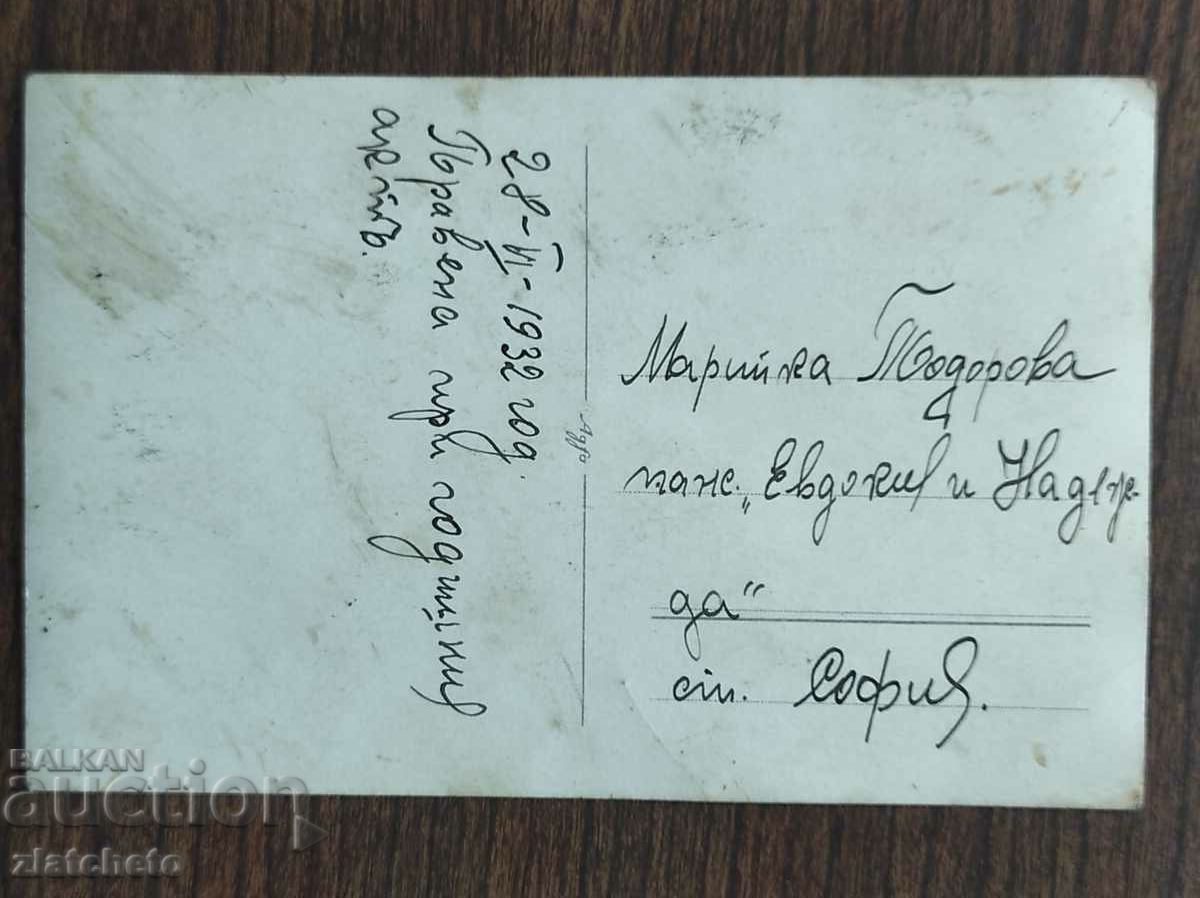 28-VI-1932 год.
Правена при годишния
актъ.
Марийка Тодорова
панс. „Евдокия и Надеж-
да“
ст. София.
BALKAN
auction
zlatcheto